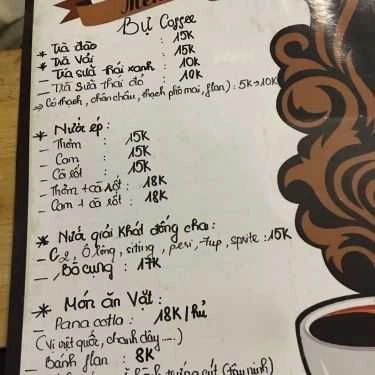 Menu
Bự Coffee
* Trà đào : 15K
* Trà Vải : 15K
- Trà sữa thái xanh : 10K
- Trà Sữa thái đỏ : 10K
→ Có thạch, chân châu, thạch phô mai, flan) : 5K → 10K
* Nước ép :
- Thơm : 15K
- Cam : 15K
- Cà rốt : 15K
- Thơm + cà rốt : 18K
- Cam + cà rốt : 18K
* Nước giải khát đóng chai :
- C2, Ô lông, siting, pesi, 7up, sprite : 15K
- Bò cụng : 17K
* Món ăn Vặt :
- Pana cotta : 18K / hủ
(Vị việt quốc, chanh dây .....)
- Bánh flan : 8K
bánh tráng cút (Tây ninh)